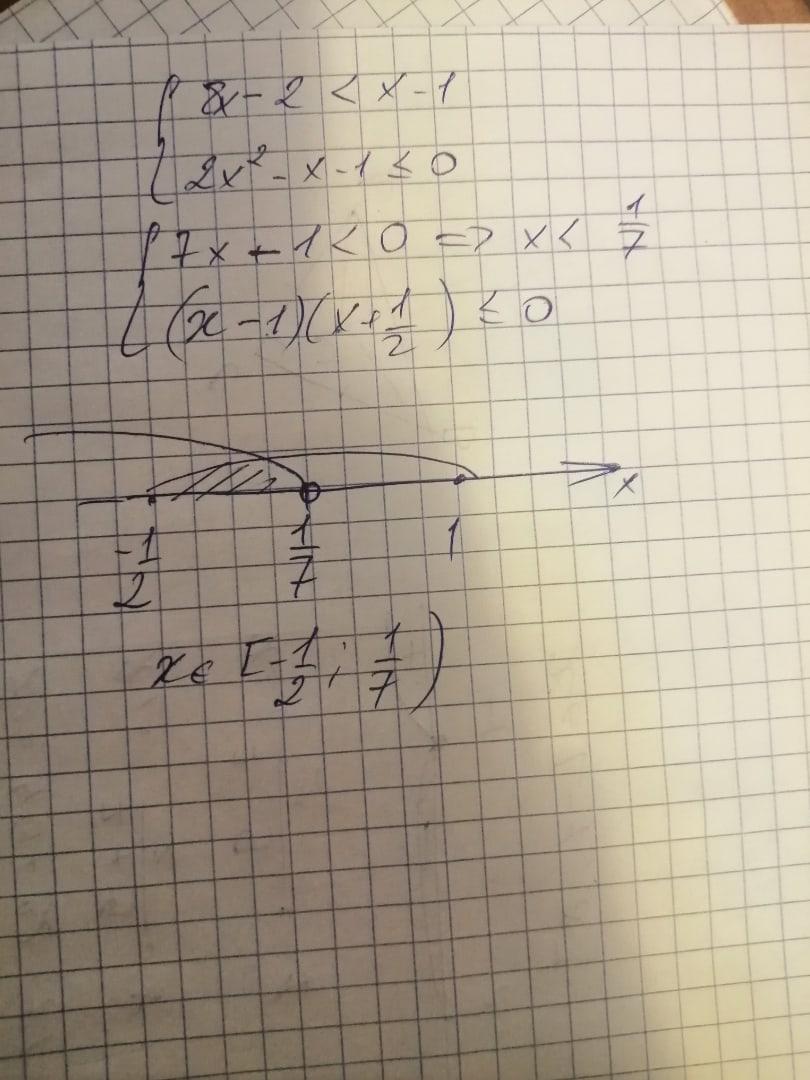 8x - 2 < x - 1
2x² - x - 1 ≤ 0
7x - 1 < 0 => x < 1/7
(x - 1)(x + 1/2) ≤ 0
-1/2 1/7 1 x
x ∈ [-1/2; 1/7)